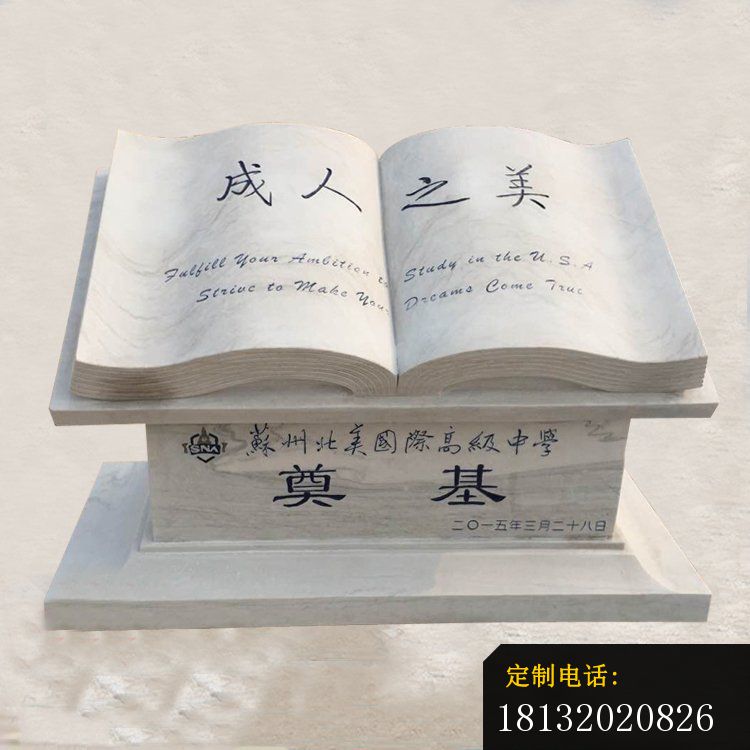 成人之美
Fulfill Your Ambition to Study in the U.S.A
Strive to Make Your Dreams Come True
SNA
蘇州北美國際高級中學
奠基
二〇一五年三月二十八日
定制电话:
18132020826